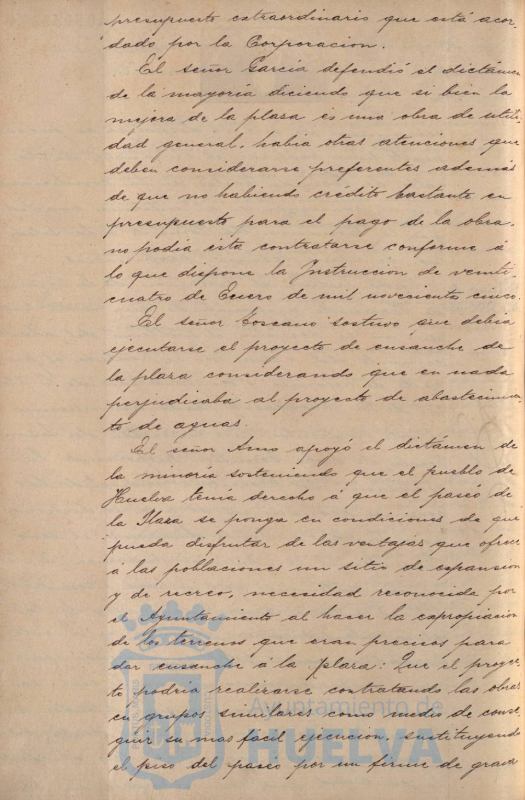 presupuesto extraordinario que está acor-
dado por la Corporacion.
El señor García defendió el dictámen
de la mayoría diciendo que si bien la
mejora de la plaza es una obra de utili-
dad general, habia otras atenciones que
deben considerarse preferentes además
de que no habiendo crédito bastante en
presupuesto para el pago de la obra,
no podia ésta contratarse conforme á
lo que dispone la Instruccion de veinti-
cuatro de Enero de mil novecientos cinco.
El señor Toscano sostuvo que debia
ejecutarse el proyecto de ensanche de
la plaza considerando que en nada
perjudicaba al proyecto de abastecimien-
to de aguas.
El señor Amo apoyó el dictámen de
la minoría sosteniendo que el pueblo de
Huelva tenia derecho á que el paseo de
la Plaza se ponga en condiciones de que
pueda disfrutar de las ventajas que ofrece
á las poblaciones un sitio de expansion
y de recreo, necesidad reconocida por
el Ayuntamiento al hacer la expropiacion
de los terrenos que eran precisos para
dar ensanche á la plaza: Que el proyec-
to podria realizarse contratando las obras
en grupos similares como medio de conse-
guir su mas facil ejecucion, sustituyendo
el piso del paseo por un firme de grava
Ayuntamiento de
HUELVA